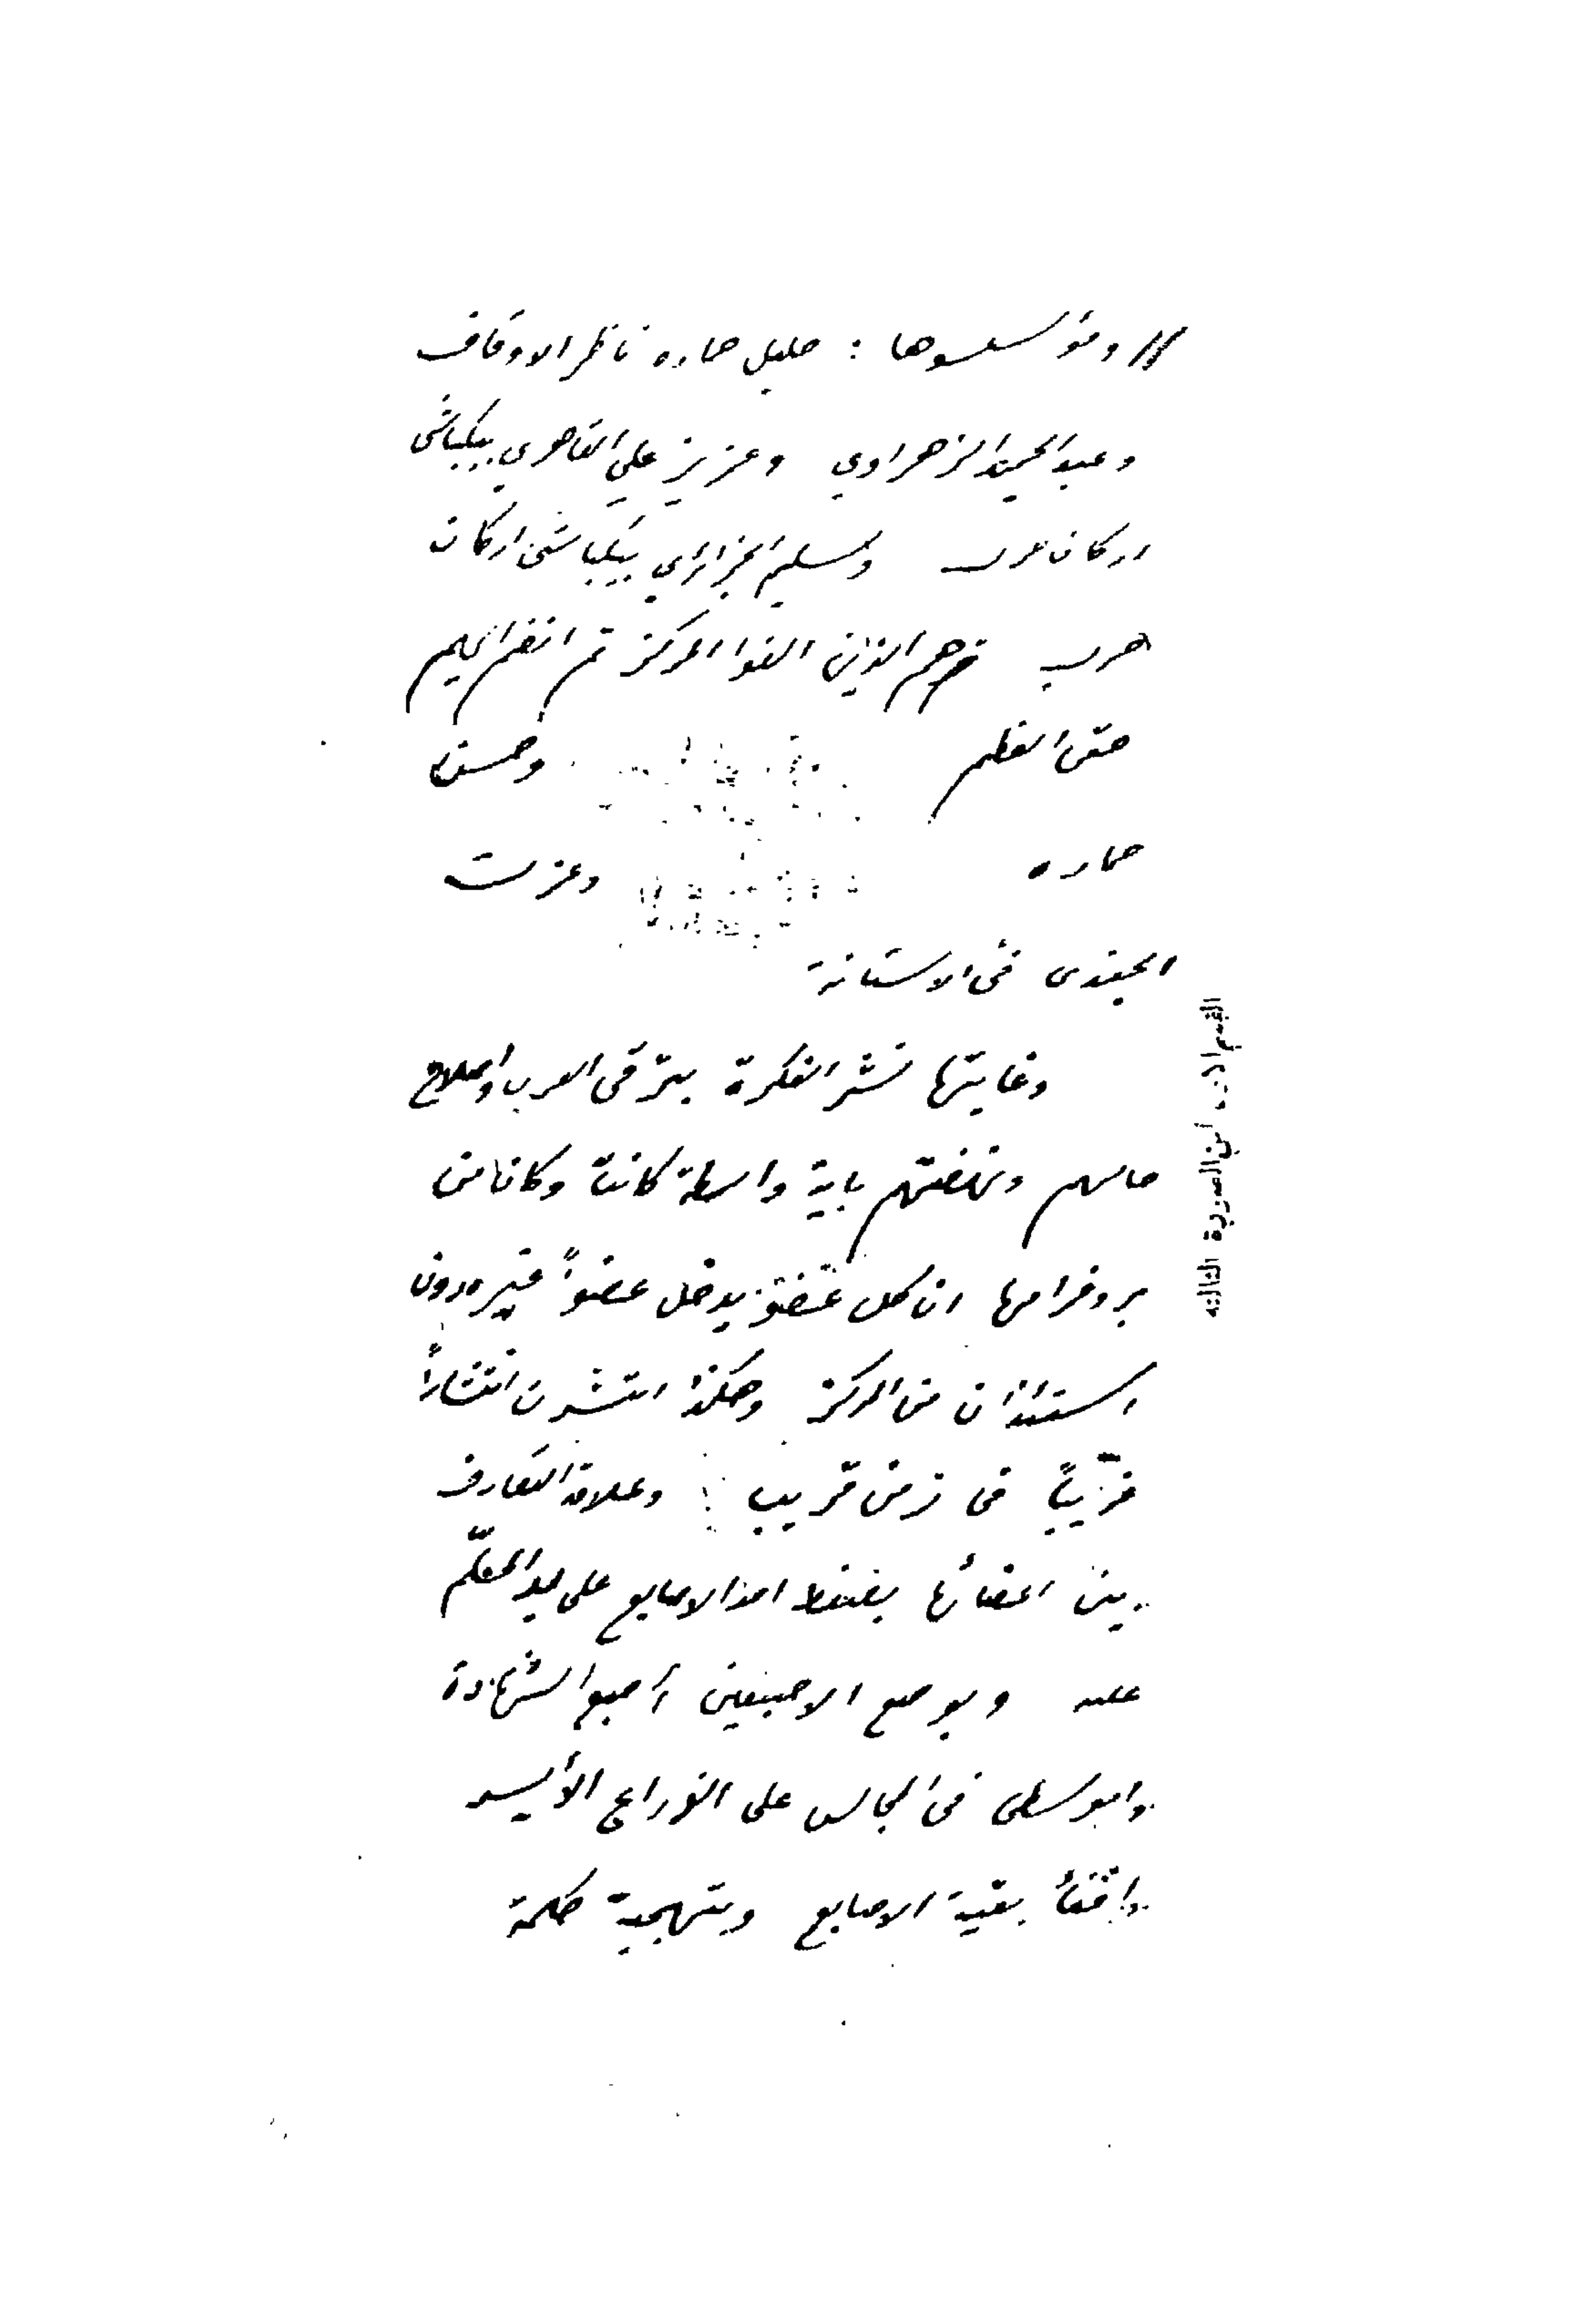 ومؤسسوها : خليل حماده ناظر الاوقاف
وعبد الحميد الزهراوي وعزيز علي القاهري بيكباشى
اركان حرب وسليم الجزائري بيكباشى اركان
حرب فهم الذين الفوا المركز ثم انضم اليهم
حقى العظم وحسن
حماده وعزت
الجندى فى الاستانة
وغايتها نشر الفكرة بترقى العرب واصلاح
حالهم ونهضتهم باية واسطة كانت وكان من
بروغرامها ان كل عضو يدخل عضواً غيره دون
استئذان من المركز وهكذا انتشرت انتشاراً
غريباً فى زمن قريب وعلامة التعارف
بين اعضائها بضغط احد الاصابع على يد المسلّم
عليه وبوضع الاصبعين اصبع الشهادة
والوسطى فى المجالس على الذراع الأيسر
واقفاً بقية الاصابع وبتهجية كلمة
القسم من الصورة الثالثة